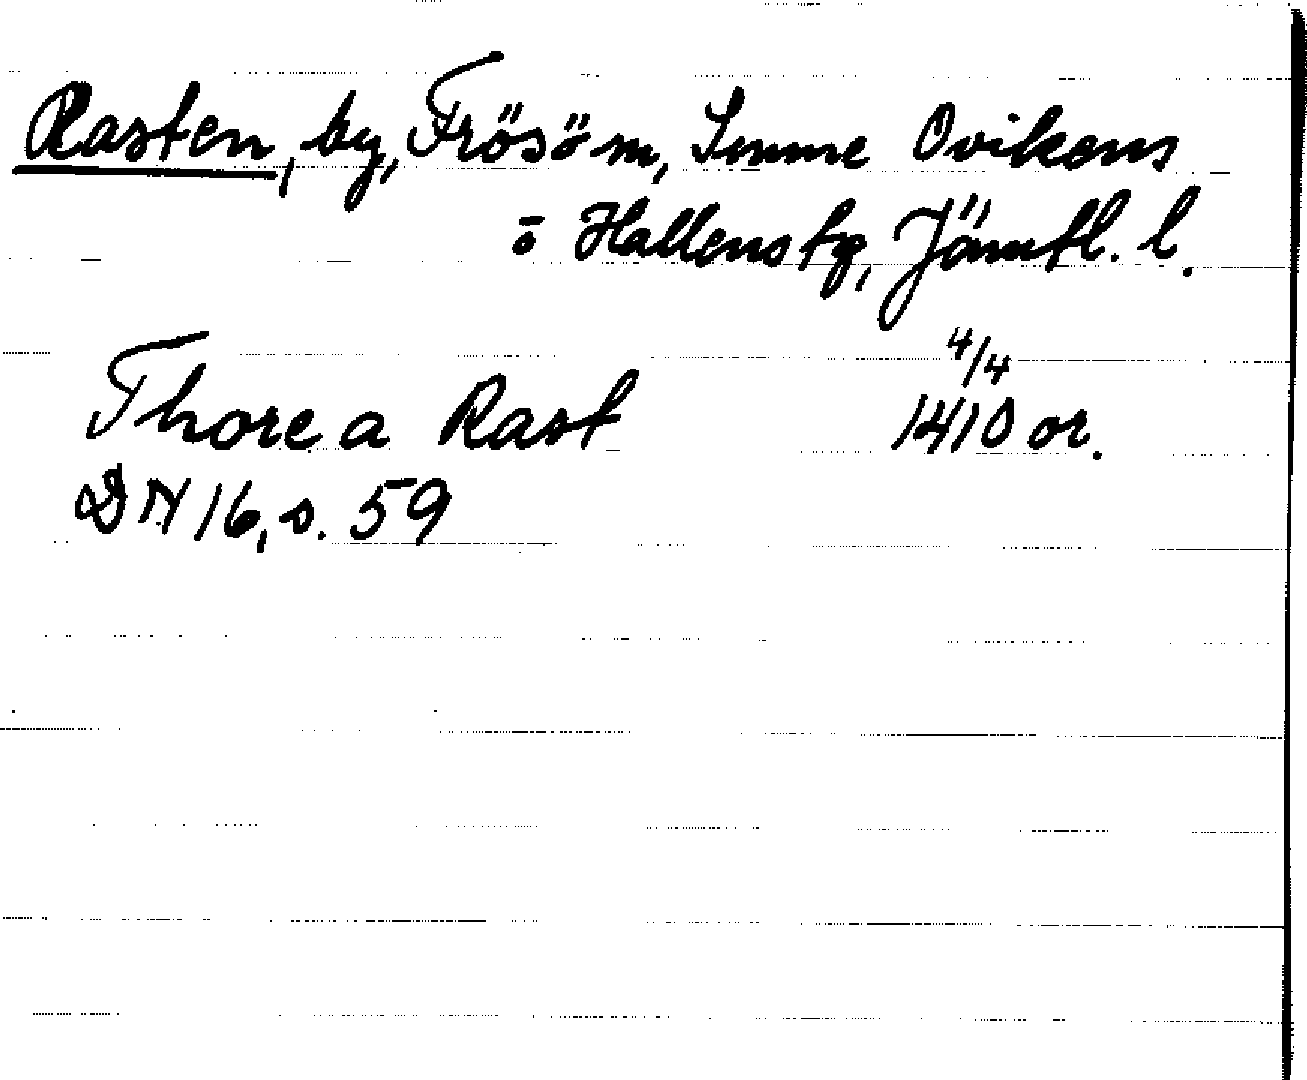 Rasten, by, Frösö sn, Sunne Ovikens
o Hallens tg, Jämtl. l.
Thore a Rast 4/4 1410 or.
DN 16, s. 59